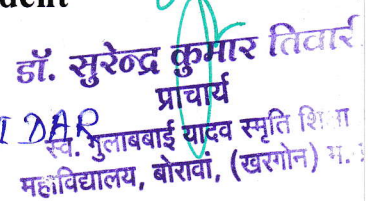 dent
डॉ. सुरेन्द्र कुमार तिवारी
प्राचार्य
IDAR
स्व. गुलाबबाई यादव स्मृति शिक्षा
महाविद्यालय, बोरावां, (खरगोन) म.